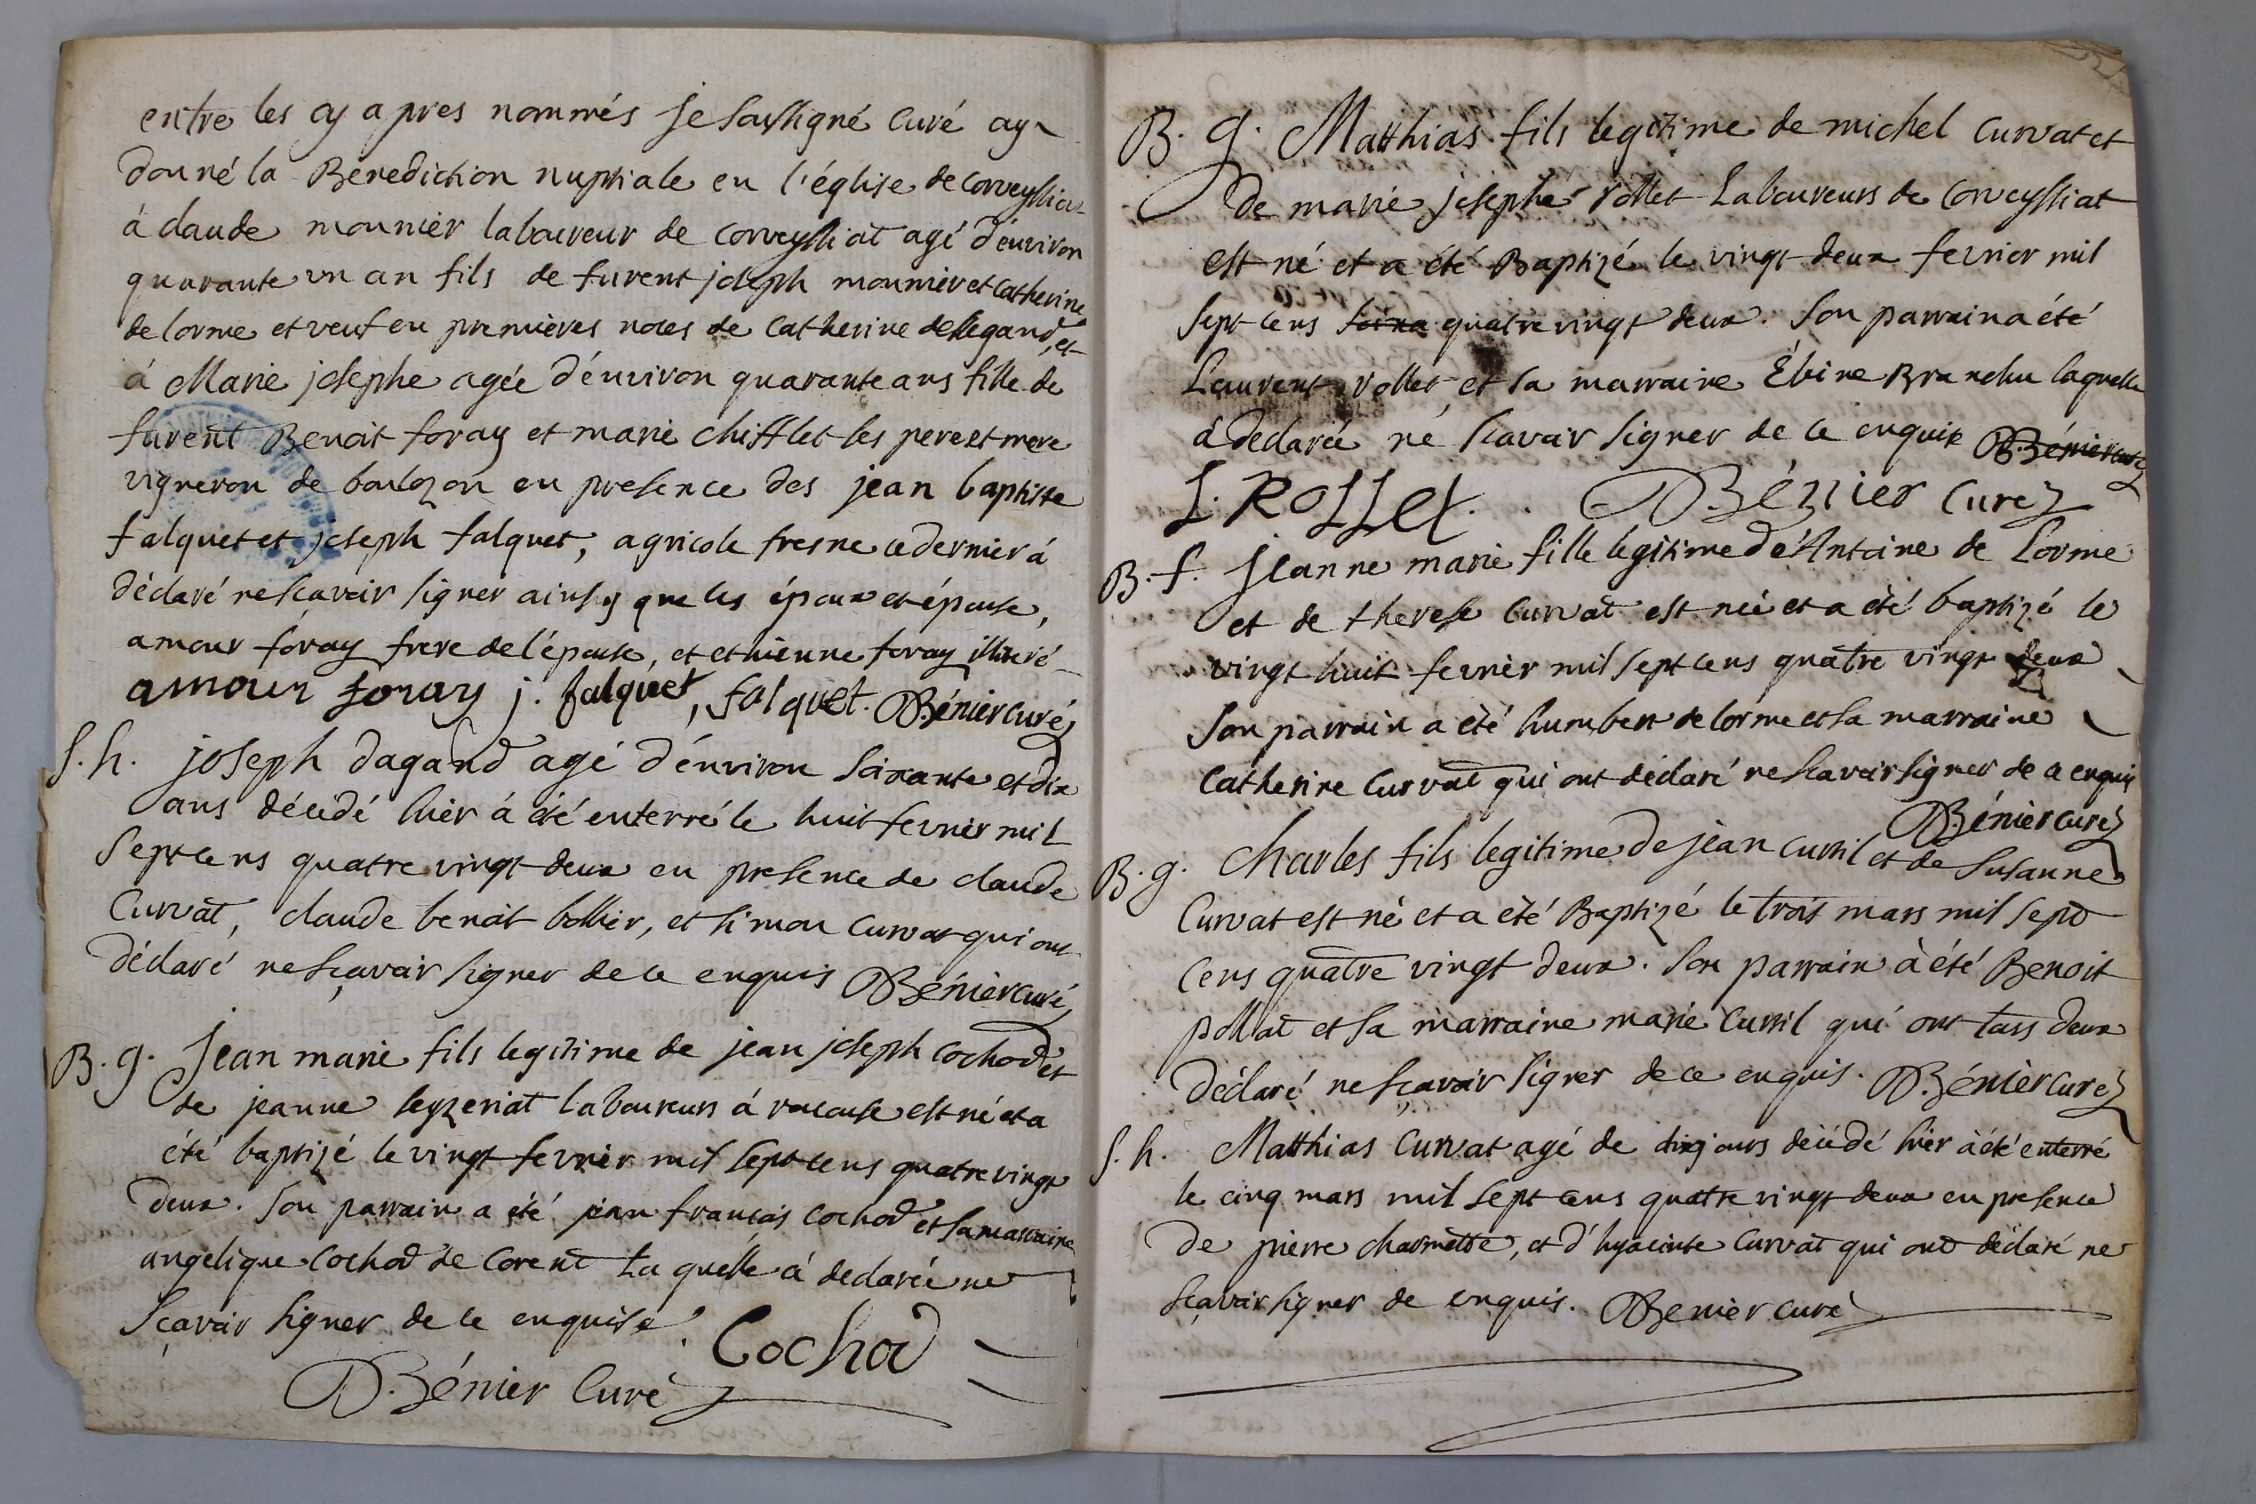 entre les cy apres nommés je soussigné curé ay
donné la Benediction nuptiale en l'église de corveyssia
à claude mounier laboureur de corveyssiat agé d'environ
quarante un an fils de furent joseph mounier et catherine
de lorme et veuf en premières noces de catherine de
à Marie josephe agée d'environ quarante ans fille de
furent Benoit foray et marie chifflet ses pere et mere
vigneron de boulozon en presence des jean baptiste
falquet et joseph falquet, agricole fresne ce dernier à
déclaré ne scavoir signer ainsy que les époux et épouse,
amour foray frere de l'épouse, et ethienne foray illiteré
amour foray j. falquet, falquet. Bénier curé
S. h. joseph dagand agé d'environ soixante et dix
ans décédé hier à été enterré le huit fevrier mil
sept cens quatre vingt deux en presence de claude
Curvat, claude benoit bollier, et simon Curvat qui ont
déclaré ne sçavoir signer de ce enquis Bénier curé
B. g. Jean marie fils legitime de jean joseph cochod et
de jeanne seyzeriat laboureurs á racouse est né et a
été baptizé le vingt fevrier mil sept cens quatre vingt
deux. Son parrain a été jean francois cochod et sa marraine
angelique cochod de corent laquelle á declarée ne
Sçavoir signer de ce enquise. Cochod
Bénier Curé
B. g. Matthias fils legitime de michel curvat et
de marie josephe rollet Laboureurs de Corveyssiat
est né et a été Baptizé le vingt deux fevrier mil
sept cens soixa quatre vingt deux. Son parrain a été
Laurent rollet et sa marraine Ébine Branchu laquelle
a declarée ne scavoir signer de ce enquise Bénier curé
L. ROLLet. Bénier curé
B. f. Jeanne marie fille legitime d'Antoine de Lorme
et de therese curvat est née et a été baptizé le
vingt huit fevrier mil sept cens quatre vingt deux
Son parrain a été humbert de lorme et sa marraine
Catherine Curvat qui ont déclaré ne scavoir signer de ce enquis
Bénier curé
B. g. Charles fils legitime de jean cuttil et de Susanne
Curvat est né et a été Baptizé le trois mars mil sept
cens quatre vingt deux. Son parrain à été Benoit
pollat et sa marraine marie Cuttil qui ont tous deux
déclaré ne sçavoir signer de ce enquis. Bénier curé
S. h. Matthias Curvat agé de dix jours décédé hier à été enterré
le cinq mars mil sept cens quatre vingt deux en presence
de pierre charmette, et d'hyacinte Curvat qui ont déclaré ne
sçavoir signer de enquis. Benier curé